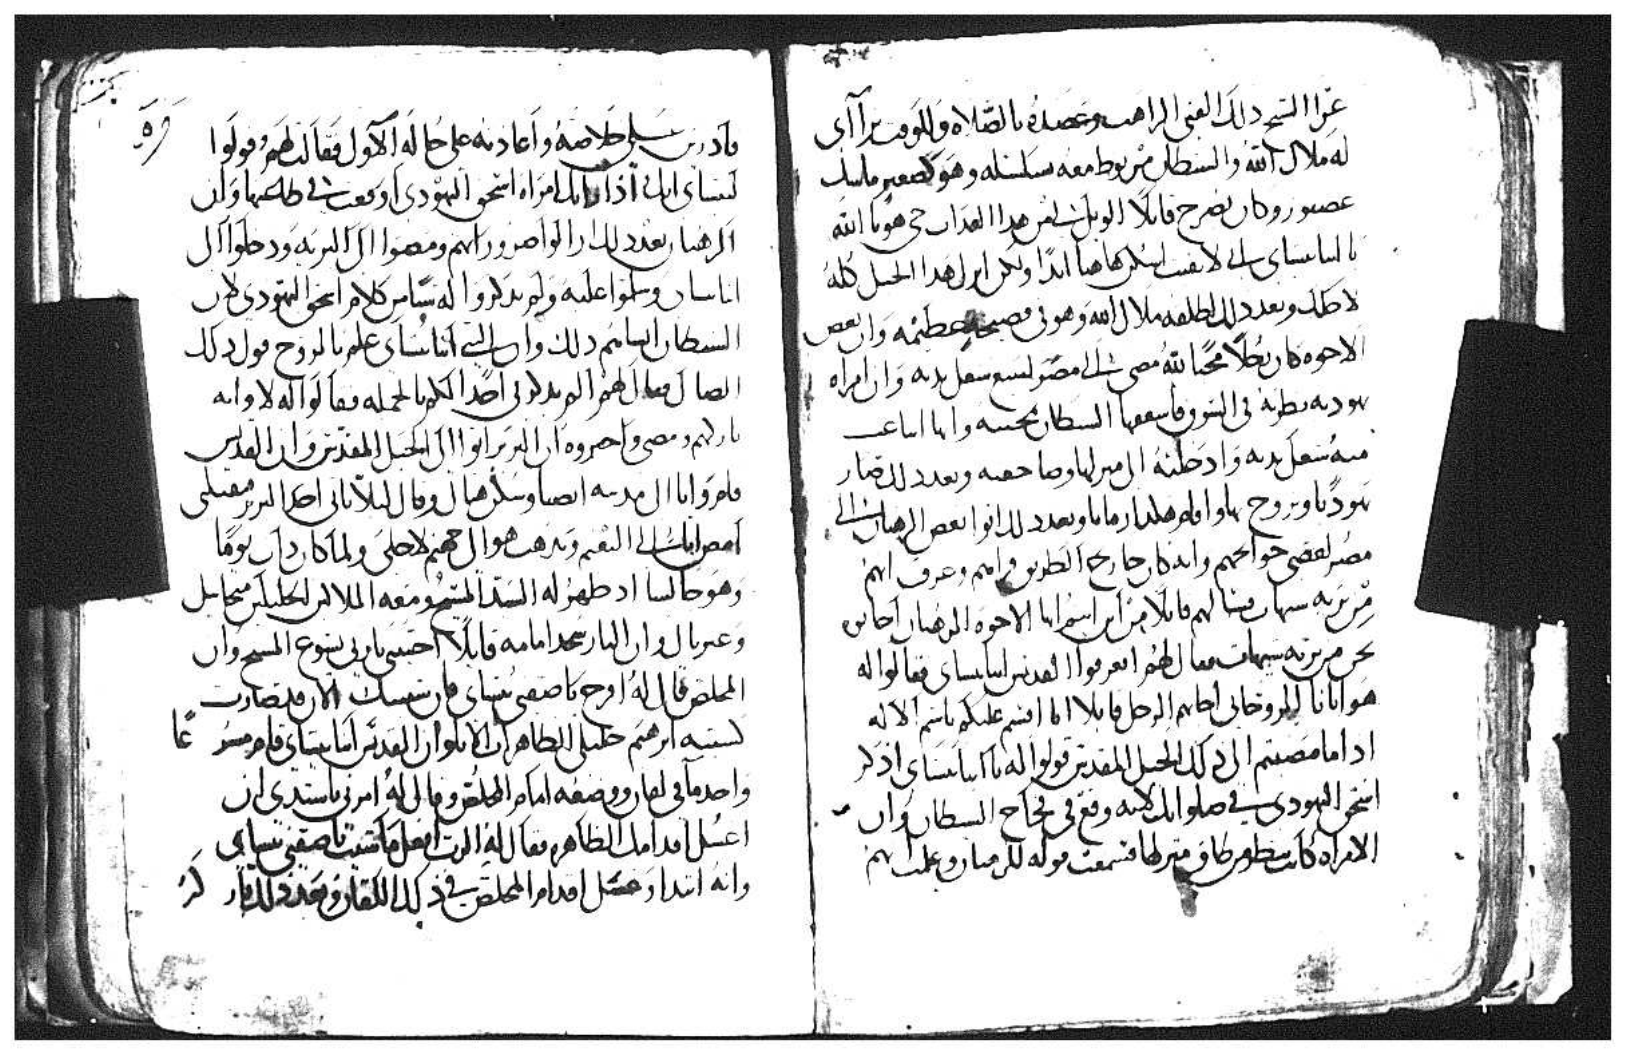 عزا الشيخ ذلك الفتى الراهب وعضده بالصلاه وللوقت تراآى
له ملاك الله والشيطان مربوط معه بسلسله وهو كصغير ماسك
عصفور وكان يصرخ قايلا الويل لى من هذا العذاب حى هو يا الله
يا انبا بساى انى لا بقيت اسكن هاهنا ابدا ولكن اترك هذا الجبل كله
لاجلك وبعد ذلك اطلقه ملاك الله وهو فى فضيحه عظيمه وان بعض
الاخوه كان بطلا محبا لله مضى الى مصر ليبيع شغل يديه وان امراه
يهوديه نظرته فى السوق فاسعفها الشيطان بمحبته وانها ابتاعت
منه شغل يديه وادخلته الى منزلها وضاجعته وبعد ذلك صار
يهوديا وتزوج بها واقام هكذا زمانا وبعد ذلك اتوا بعض الرهبان الى
مصر لقضى حوايجهم وانه كان خارجا الطريق فراهم وعرف انهم
من بريه شيهات فسالهم قايلا من اين انتم ايها الاخوه الرهبان اجابوه
نحن من بريه شيهات فقال لهم اتعرفوا القديس انبا بساى فقالوا له
هو ابانا الروحانى اجابهم الرجل قايلا انا اقسم عليكم باسم الاله
اذا ما مضيتم الى ذلك الجبل المقدس قولوا له يا انبا بساى اذكر
اسحق اليهودى فى صلواتك لانه وقع فى فخاخ الشيطان وان
الامراه كانت تنظر من طاق منزلها فسمعت قوله للرهبان وعلمت انهم
قادرين على خلاصه واعادته على حاله الاول فقالت لهم قولوا
لبساى ابوك اذا امراه اسحق اليهودى اوقعت فى
الرهبان بعد ذلك ازالوا ضروراتهم ومضوا الى البريه ودخلوا الى
انبا بساى وسلموا عليه ولم يذكروا له شيا من كلام اسحق اليهودى لان
الشيطان انساهم ذلك وان الشيخ انبا بساى علم بالروح قول ذلك
الضال فقال لهم الم يذكرنى احدا لكم بالجمله فقالوا له لا وانه
باركهم ومضى واخبروه ان البربر اتوا الى الجبل المقدس وان القديس
قام واتا الى مدينه انصنا وسكن هناك وقال ليلا ياتى احد البربر فيقتلنى
امضى انا الى النعيم ويذهب هو الى جهنم لاجلى ولما كان ذات يوما
وهو جالسا اذ ظهر له السيد المسيح ومعه الملاكين الجليلين ميخاييل
وغبريال وان البار سجد امامه قايلا احببنى يا ربى يسوع المسيح وان
المخلص قال له افرح يا صفيى بيساى فان نفسك الان قد صارت
كسيه ابرهيم خليلى الطاهر
واخذ ما فى لقان ووضعه امام المخلص وقال له امرنى يا سيدى ان
اغسل اقدامك الطاهره فقال له الرب افعل ما شيت يا صفيى بيساى
وانه ابتدا وغسل اقدام المخلص فى ذلك اللقان وبعد ذلك